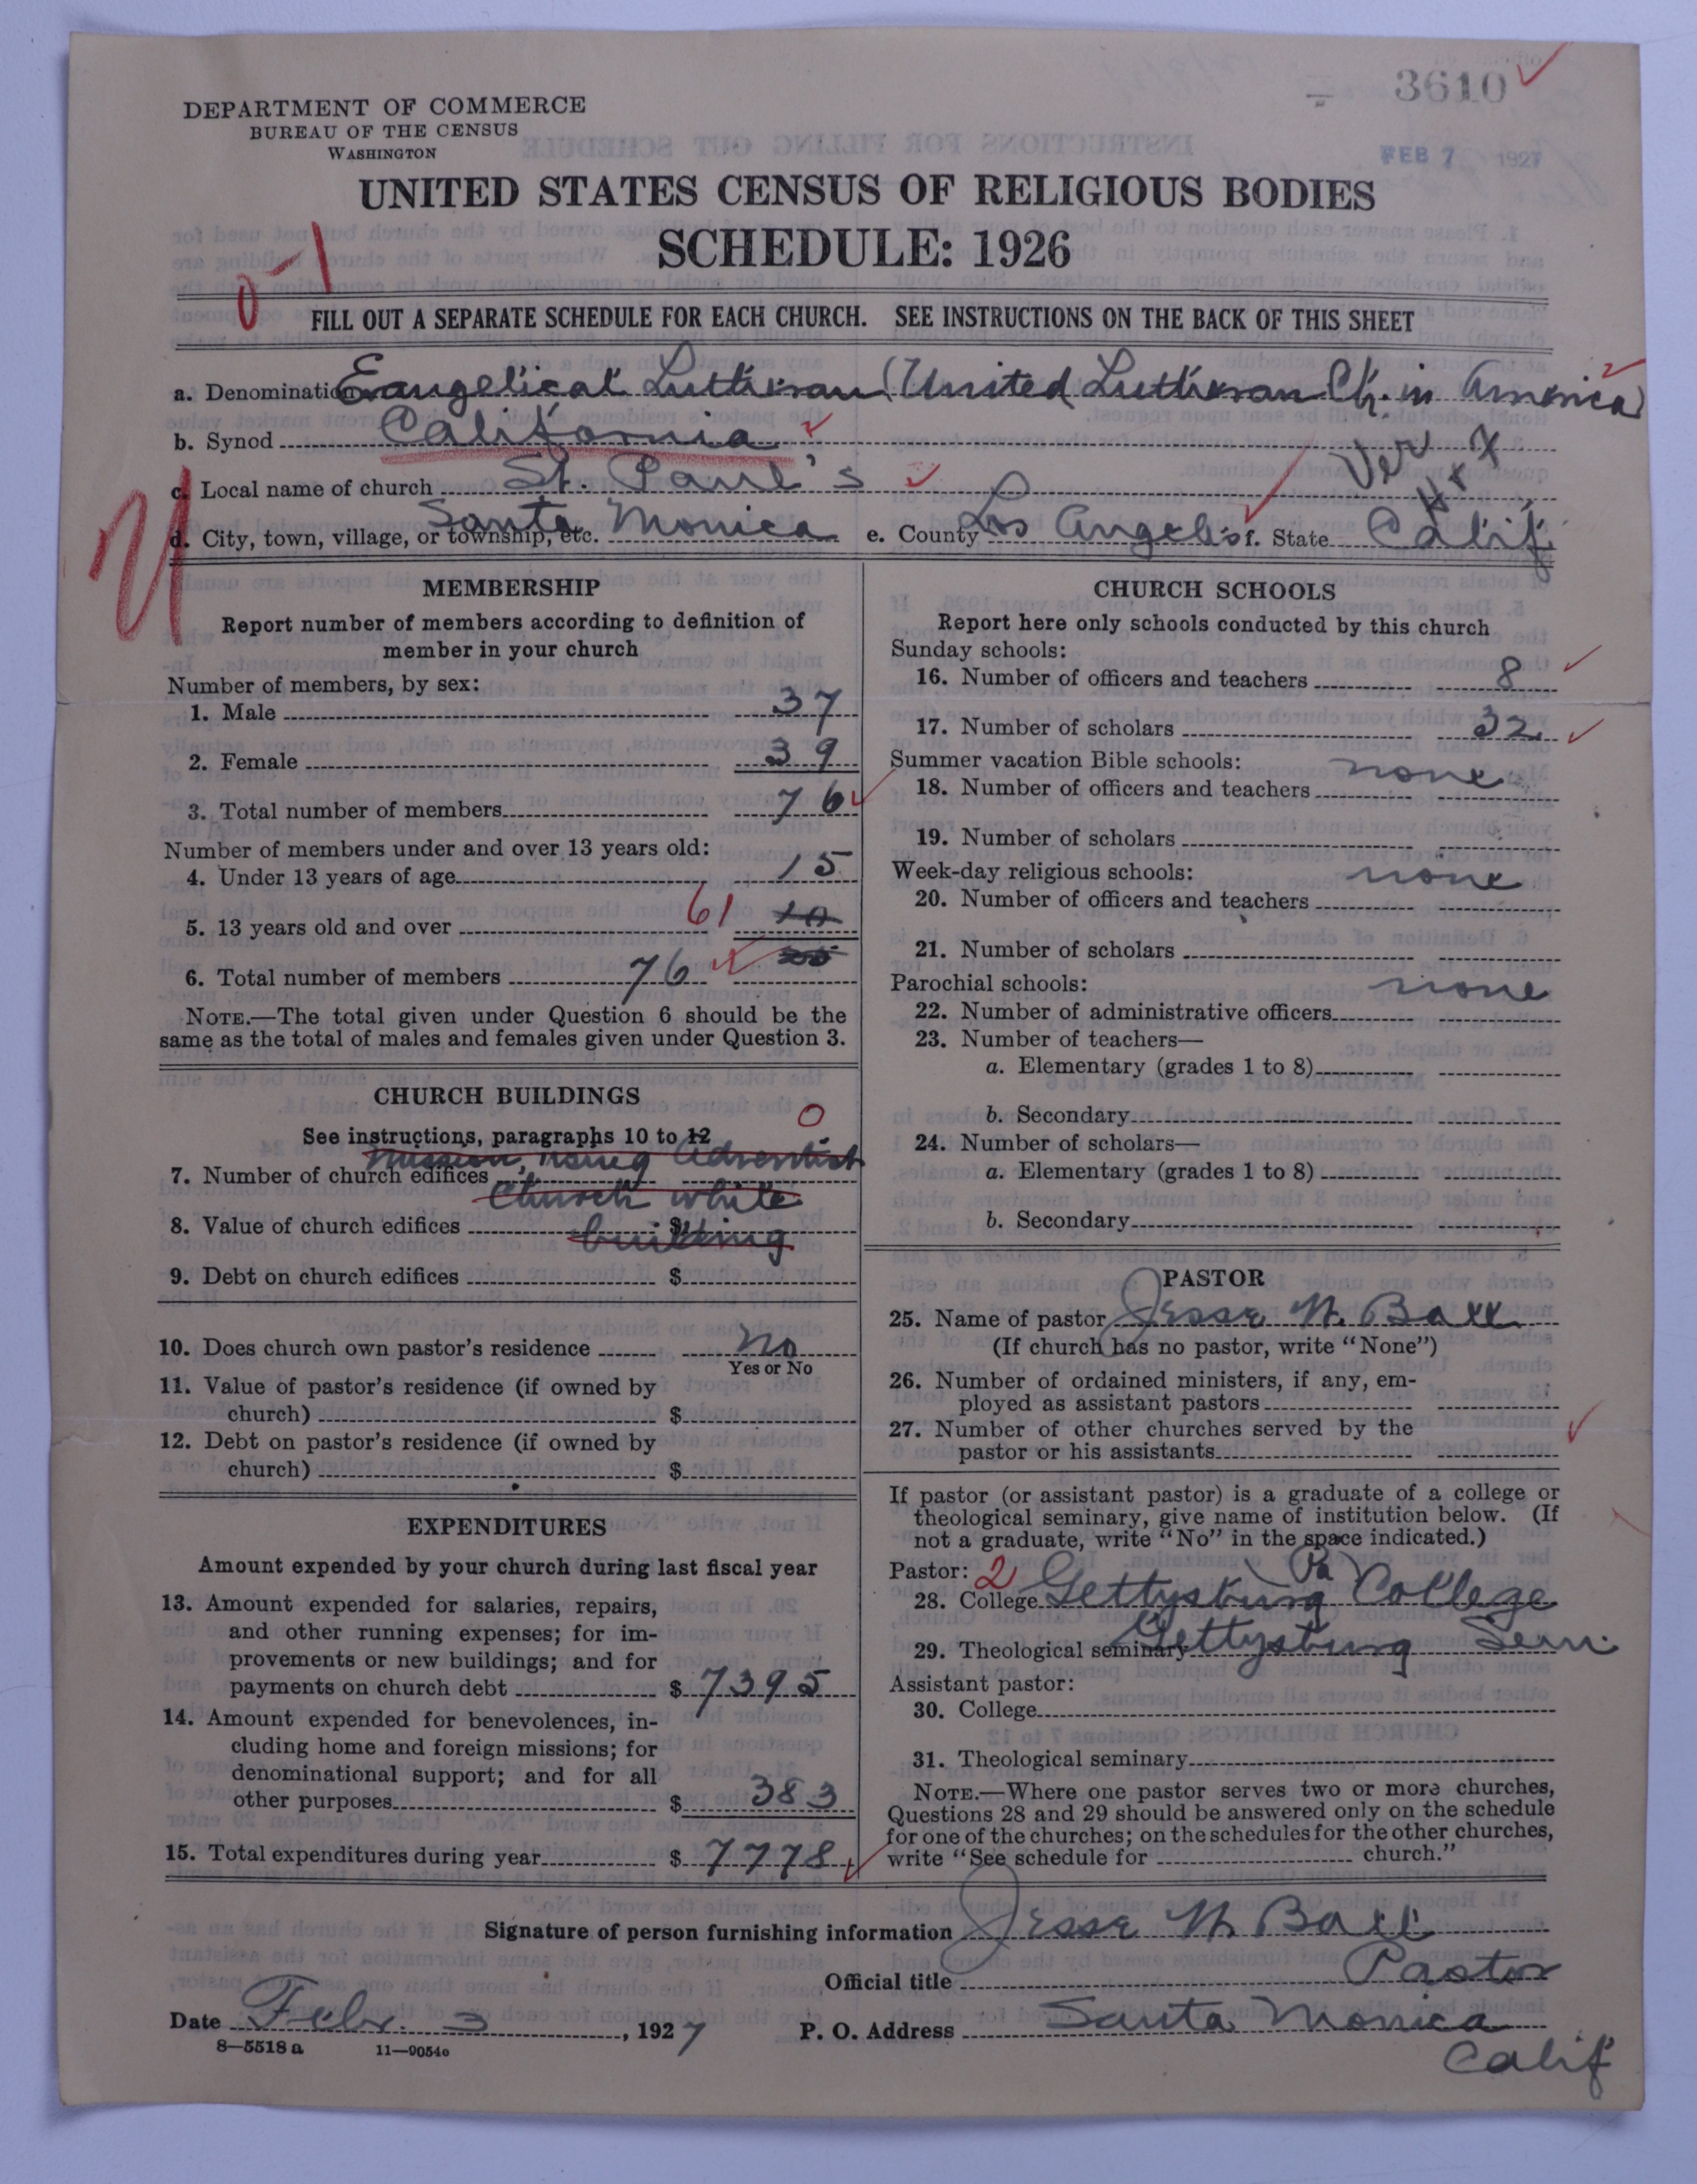 3610
DEPARTMENT OF COMMERCE
BUREAU OF THE CENSUS
WASHINGTON
FEB 7 1927
UNITED STATES CENSUS OF RELIGIOUS BODIES
SCHEDULE: 1926
0-1
FILL OUT A SEPARATE SCHEDULE FOR EACH CHURCH. SEE INSTRUCTIONS ON THE BACK OF THIS SHEET
a. Denomination Evangelical Lutheran (United Lutheran Ch. in America)
b. Synod California
c. Local name of church St. Paul's
d. City, town, village, or township, etc. Santa Monica e. County Los Angeles f. State Calif
MEMBERSHIP
Report number of members according to definition of
member in your church
Number of members, by sex:
1. Male 37
2. Female 39
3. Total number of members 76
Number of members under and over 13 years old:
4. Under 13 years of age 15
5. 13 years old and over 61 10
6. Total number of members 76
NOTE.—The total given under Question 6 should be the
same as the total of males and females given under Question 3.
CHURCH BUILDINGS
See instructions, paragraphs 10 to 12
0
Mission, using Adventist
7. Number of church edifices
Church while
8. Value of church edifices $
building
9. Debt on church edifices $
10. Does church own pastor's residence No
Yes or No
11. Value of pastor's residence (if owned by
church) $
12. Debt on pastor's residence (if owned by
church) $
EXPENDITURES
Amount expended by your church during last fiscal year
13. Amount expended for salaries, repairs,
and other running expenses; for im-
provements or new buildings; and for
payments on church debt $ 7395
14. Amount expended for benevolences, in-
cluding home and foreign missions; for
denominational support; and for all
other purposes $ 383
15. Total expenditures during year $ 7778
CHURCH SCHOOLS
Report here only schools conducted by this church
Sunday schools:
16. Number of officers and teachers 8
17. Number of scholars 32
Summer vacation Bible schools: none
18. Number of officers and teachers
19. Number of scholars
Week-day religious schools: none
20. Number of officers and teachers
21. Number of scholars
Parochial schools: none
22. Number of administrative officers
23. Number of teachers—
a. Elementary (grades 1 to 8)
b. Secondary
24. Number of scholars—
a. Elementary (grades 1 to 8)
b. Secondary
PASTOR
25. Name of pastor Jesse W. Ball
(If church has no pastor, write "None")
26. Number of ordained ministers, if any, em-
ployed as assistant pastors
27. Number of other churches served by the
pastor or his assistants
If pastor (or assistant pastor) is a graduate of a college or
theological seminary, give name of institution below. (If
not a graduate, write "No" in the space indicated.)
Pastor: 2 Pa
28. College Gettysburg College
29. Theological seminary Gettysburg Sem.
Assistant pastor:
30. College
31. Theological seminary
NOTE.—Where one pastor serves two or more churches,
Questions 28 and 29 should be answered only on the schedule
for one of the churches; on the schedules for the other churches,
write "See schedule for church."
Signature of person furnishing information Jesse W. Ball
Official title Pastor
Date Febr. 3, 1927 P. O. Address Santa Monica
8—5518 a 11—9054o Calif